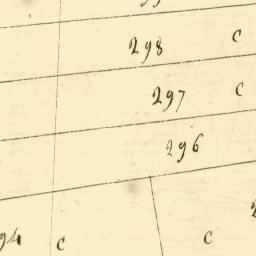 298 C
297 C
296
94 C C